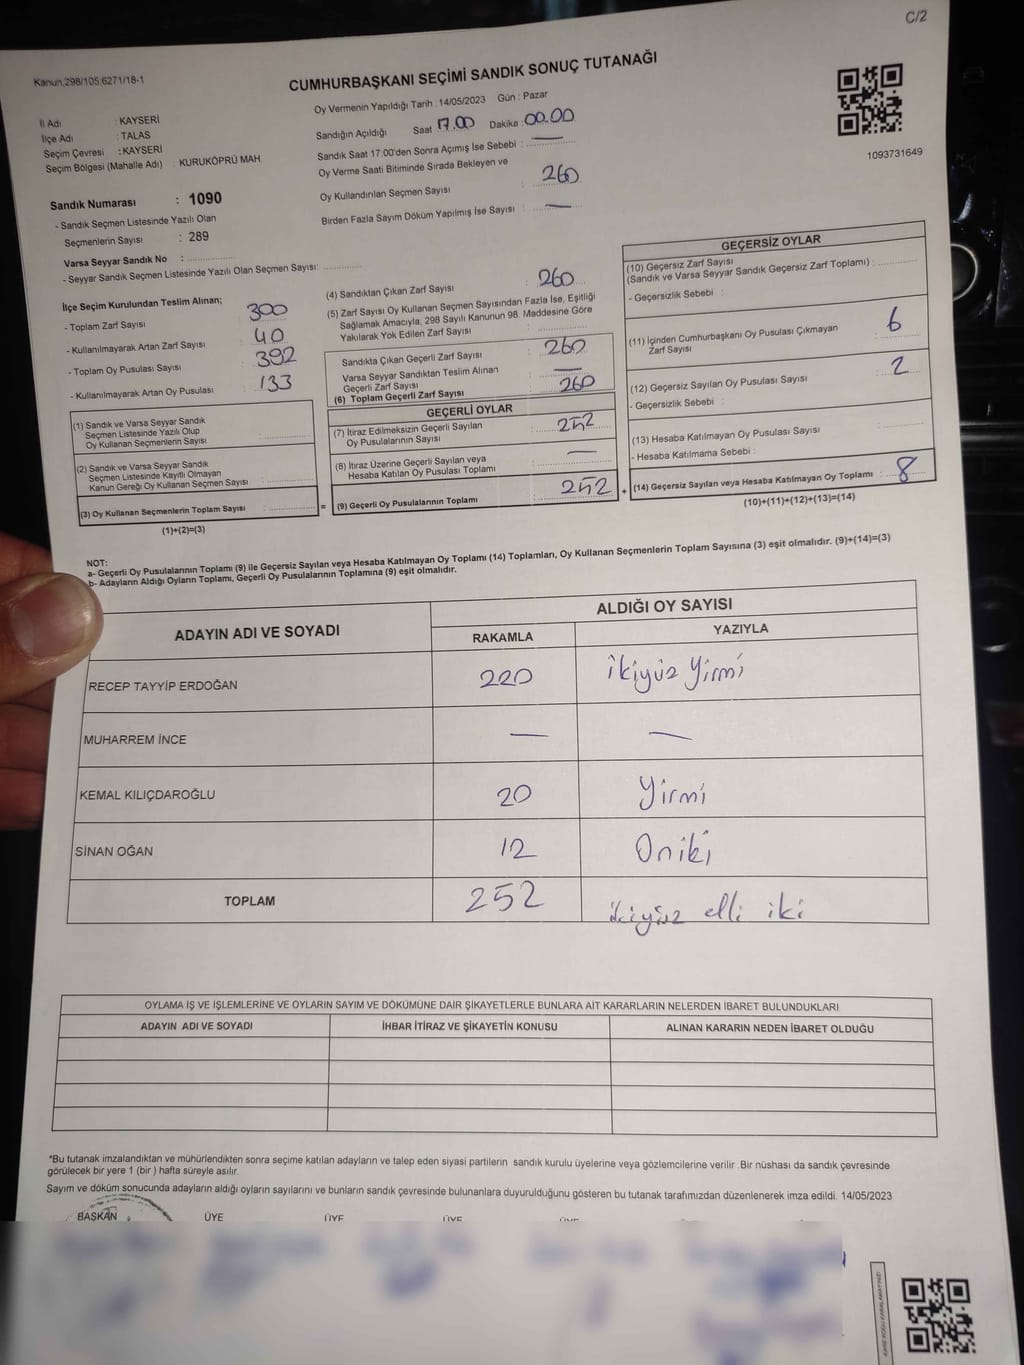 C/2
Kanun;298/105;6271/18-1
CUMHURBAŞKANI SEÇİMİ SANDIK SONUÇ TUTANAĞI
1093731649
İl Adı : KAYSERİ
İlçe Adı : TALAS
Seçim Çevresi : KAYSERİ
Seçim Bölgesi (Mahalle Adı) : KURUKÖPRÜ MAH.
Sandık Numarası : 1090
- Sandık Seçmen Listesinde Yazılı Olan
Seçmenlerin Sayısı : 289
Varsa Seyyar Sandık No :
- Seyyar Sandık Seçmen Listesinde Yazılı Olan Seçmen Sayısı:
Oy Vermenin Yapıldığı Tarih : 14/05/2023 Gün : Pazar
Sandığın Açıldığı Saat 17.00 Dakika : 00.00
Sandık Saat 17:00'den Sonra Açımış İse Sebebi : —
Oy Verme Saati Bitiminde Sırada Bekleyen ve
Oy Kullandırılan Seçmen Sayısı : 260
Birden Fazla Sayım Döküm Yapılmış İse Sayısı : —
İlçe Seçim Kurulundan Teslim Alınan;
- Toplam Zarf Sayısı : 300
- Kullanılmayarak Artan Zarf Sayısı : 40
- Toplam Oy Pusulası Sayısı : 392
- Kullanılmayarak Artan Oy Pusulası : 133
(1) Sandık ve Varsa Seyyar Sandık
Seçmen Listesinde Yazılı Olup
Oy Kullanan Seçmenlerin Sayısı :
(2) Sandık ve Varsa Seyyar Sandık
Seçmen Listesinde Kayıtlı Olmayan
Kanun Gereği Oy Kullanan Seçmen Sayısı :
(3) Oy Kullanan Seçmenlerin Toplam Sayısı :
(1)+(2)=(3)
=
(4) Sandıktan Çıkan Zarf Sayısı : 260
(5) Zarf Sayısı Oy Kullanan Seçmen Sayısından Fazla İse, Eşitliği
Sağlamak Amacıyla, 298 Sayılı Kanunun 98. Maddesine Göre
Yakılarak Yok Edilen Zarf Sayısı :
Sandıkta Çıkan Geçerli Zarf Sayısı : 260
Varsa Seyyar Sandıktan Teslim Alınan
Geçerli Zarf Sayısı : —
(6) Toplam Geçerli Zarf Sayısı : 260
GEÇERLİ OYLAR
(7) İtiraz Edilmeksizin Geçerli Sayılan
Oy Pusulalarının Sayısı : 252
(8) İtiraz Üzerine Geçerli Sayılan veya
Hesaba Katılan Oy Pusulası Toplamı : —
(9) Geçerli Oy Pusulalarının Toplamı : 252
+
GEÇERSİZ OYLAR
(10) Geçersiz Zarf Sayısı
(Sandık ve Varsa Seyyar Sandık Geçersiz Zarf Toplamı) :
- Geçersizlik Sebebi :
(11) İçinden Cumhurbaşkanı Oy Pusulası Çıkmayan
Zarf Sayısı : 6
(12) Geçersiz Sayılan Oy Pusulası Sayısı : 2
- Geçersizlik Sebebi :
(13) Hesaba Katılmayan Oy Pusulası Sayısı :
- Hesaba Katılmama Sebebi :
(14) Geçersiz Sayılan veya Hesaba Katılmayan Oy Toplamı : 8
(10)+(11)+(12)+(13)=(14)
NOT:
a- Geçerli Oy Pusulalarının Toplamı (9) ile Geçersiz Sayılan veya Hesaba Katılmayan Oy Toplamı (14) Toplamları, Oy Kullanan Seçmenlerin Toplam Sayısına (3) eşit olmalıdır. (9)+(14)=(3)
b- Adayların Aldığı Oyların Toplamı, Geçerli Oy Pusulalarının Toplamına (9) eşit olmalıdır.
ADAYIN ADI VE SOYADI ALDIĞI OY SAYISI
RAKAMLA YAZIYLA
RECEP TAYYİP ERDOĞAN 220 ikiyüz Yirmi
MUHARREM İNCE — —
KEMAL KILIÇDAROĞLU 20 Yirmi
SİNAN OĞAN 12 Oniki
TOPLAM 252 ikiyüz elli iki
OYLAMA İŞ VE İŞLEMLERİNE VE OYLARIN SAYIM VE DÖKÜMÜNE DAİR ŞİKAYETLERLE BUNLARA AİT KARARLARIN NELERDEN İBARET BULUNDUKLARI
ADAYIN ADI VE SOYADI İHBAR İTİRAZ VE ŞİKAYETİN KONUSU ALINAN KARARIN NEDEN İBARET OLDUĞU
*Bu tutanak imzalandıktan ve mühürlendikten sonra seçime katılan adayların ve talep eden siyasi partilerin sandık kurulu üyelerine veya gözlemcilerine verilir .Bir nüshası da sandık çevresinde
görülecek bir yere 1 (bir ) hafta süreyle asılır.
Sayım ve döküm sonucunda adayların aldığı oyların sayılarını ve bunların sandık çevresinde bulunanlara duyurulduğunu gösteren bu tutanak tarafımızdan düzenlenerek imza edildi. 14/05/2023
BAŞKAN ÜYE ÜYE ÜYE